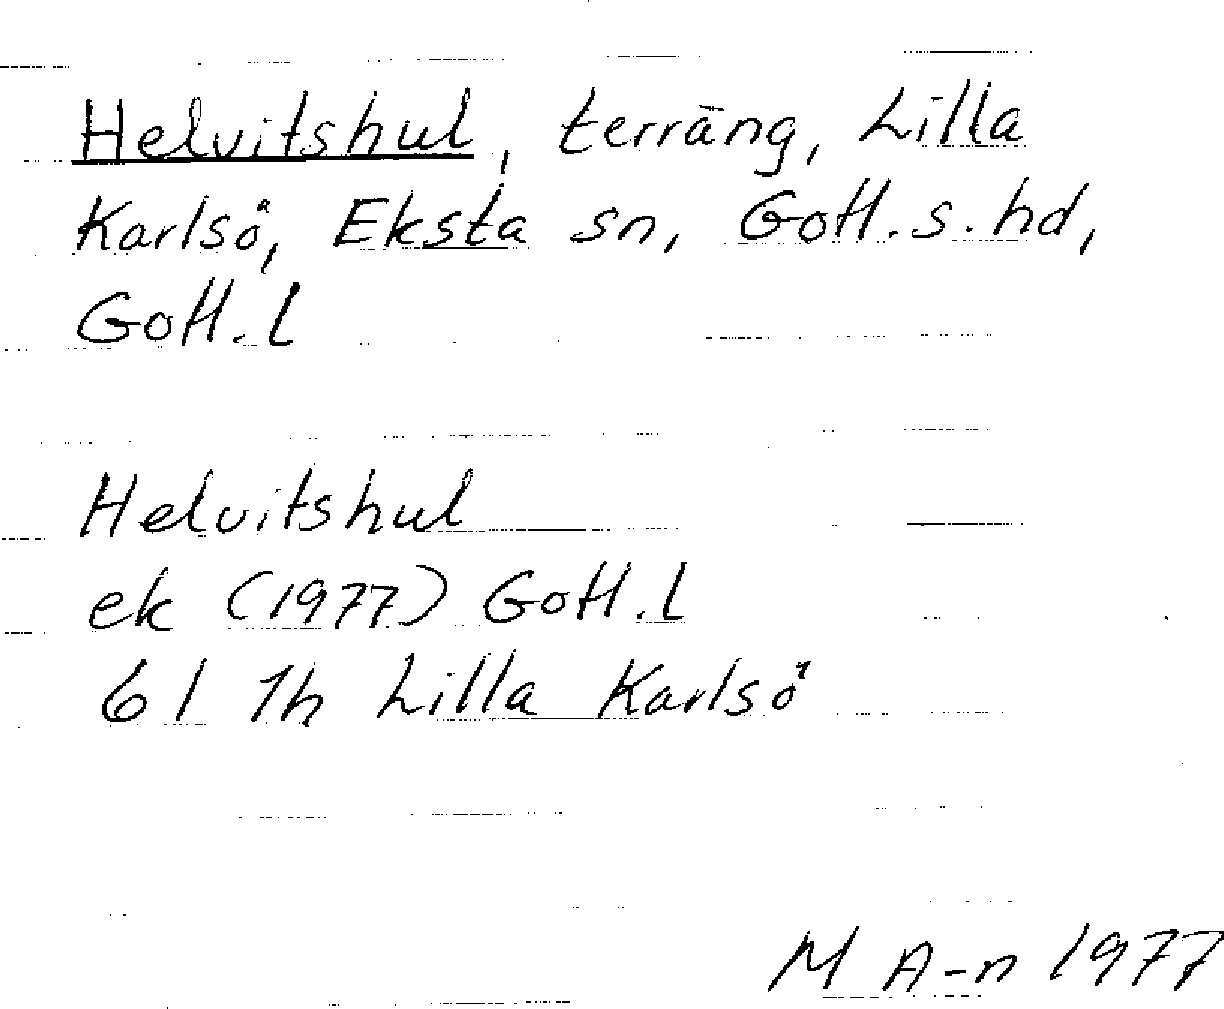 Helvitshul, terräng, Lilla
Karlsö, Eksta sn, Gotl. s. hd,
Gotl. l
Helvitshul
ek (1977) Gotl. l
6I 1h Lilla Karlsö
M A-n 1977